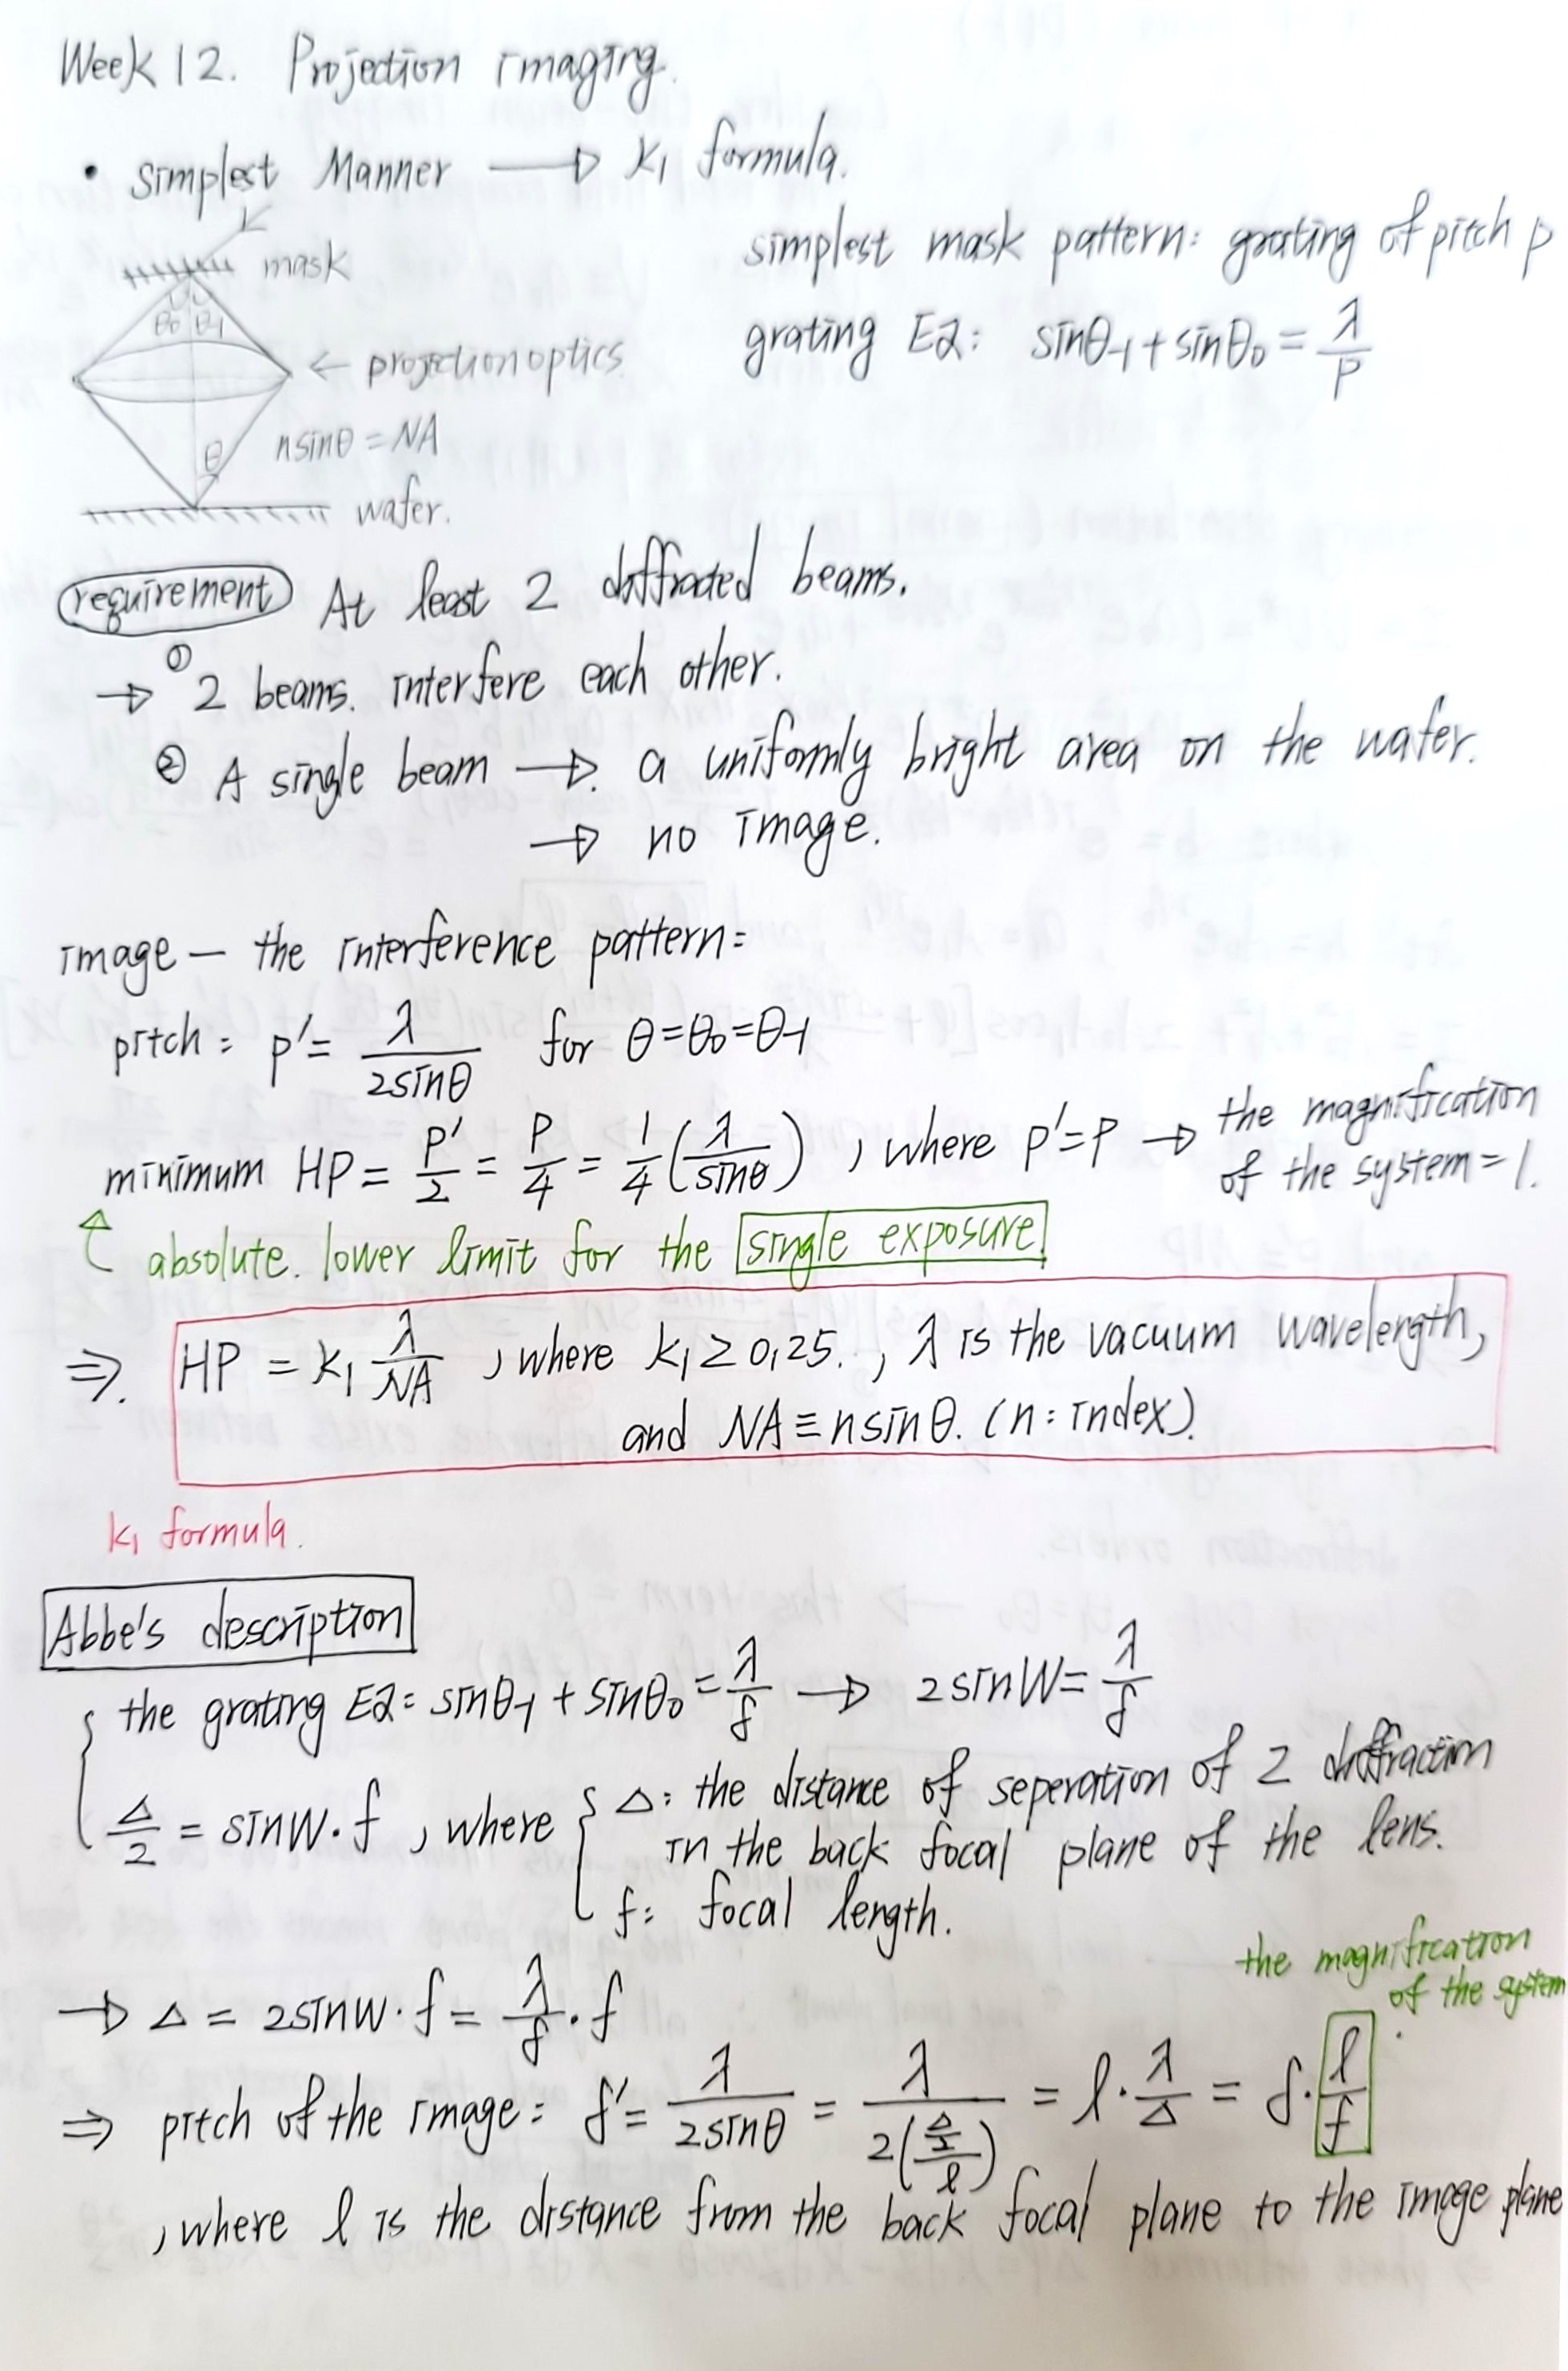 Week 12. Projection imaging.
• simplest Manner → k₁ formula.
mask
θ₀ θ₋₁
← projection optics
nsinθ = NA
θ
wafer.
simplest mask pattern: grating of pitch p
grating EQ: sinθ₋₁ + sinθ₀ = λ/p
requirement At least 2 diffracted beams.
→ ① 2 beams. interfere each other.
② A single beam → a uniformly bright area on the wafer.
→ no image.
image — the interference pattern:
pitch: p' = λ/(2sinθ) for θ = θ₀ = θ₋₁
minimum HP = p'/2 = p/4 = 1/4 (λ/sinθ) , where p' = p → the magnification
of the system = 1.
↑ absolute. lower limit for the single exposure.
⇒. HP = k₁ λ/NA , where k₁ ≥ 0.25. , λ is the vacuum wavelength,
and NA ≡ nsinθ. (n: index).
k₁ formula.
Abbe's description
the grating EQ: sinθ₋₁ + sinθ₀ = λ/δ → 2sinW = λ/δ
Δ/2 = sinW·f , where { Δ: the distance of seperation of 2 diffraction
in the back focal plane of the lens.
f: focal length.
→ Δ = 2sinW·f = λ/δ·f
the magnification
of the system
⇒ pitch of the image: δ' = λ/(2sinθ) = λ/(2((Δ/2)/l)) = l·λ/Δ = δ·l/f
, where l is the distance from the back focal plane to the image plane